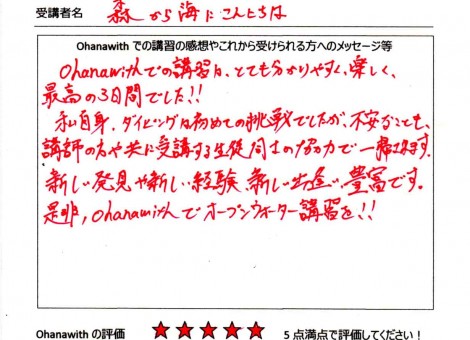 受講者名 森から海にこんにちは
Ohanawith での講習の感想やこれから受けられる方へのメッセージ等
Ohanawithでの講習は、とても分かりやすく、楽しく、
最高の3日間でした!!
私自身、ダイビングは初めての挑戦でしたが、不安なことも、
講師の方や共に受講する生徒同士の協力で一掃されます。
新しい発見や新しい経験、新しい出逢い、豊富です。
是非、Ohanawithでオープンウォーター講習を!!
Ohanawith の評価 ★★★★★ 5 点満点で評価してください!